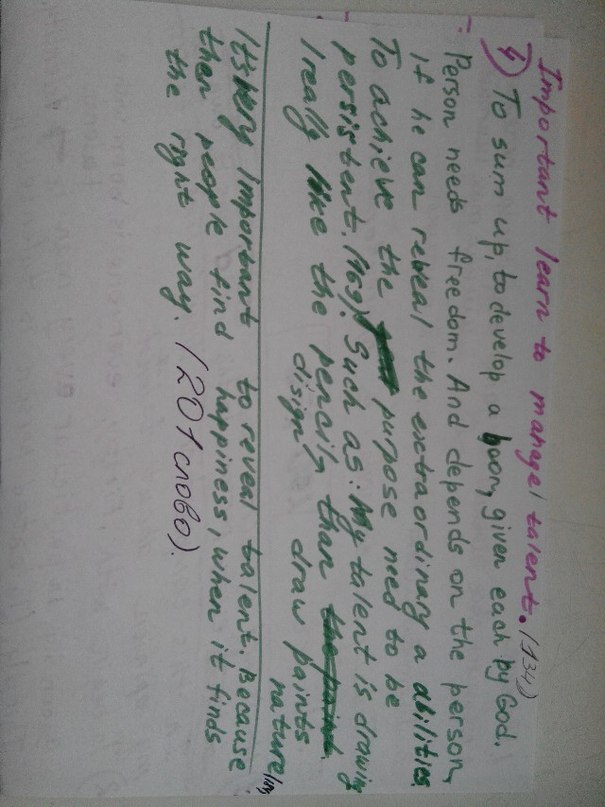 Important learn to manage talent. (134)
4) To sum up, to develop a boon, given each by God.
Person needs freedom. And depends on the person,
if he can reveal the extraordinary a abilities.
To achieve the purpose need to be
persistent. (169). Such as: My talent is drawing
I really like the pencil, than draw paints
disign nature
Its very important to reveal talent. Because
then people find happiness, when it finds
the right way. (201 слово).